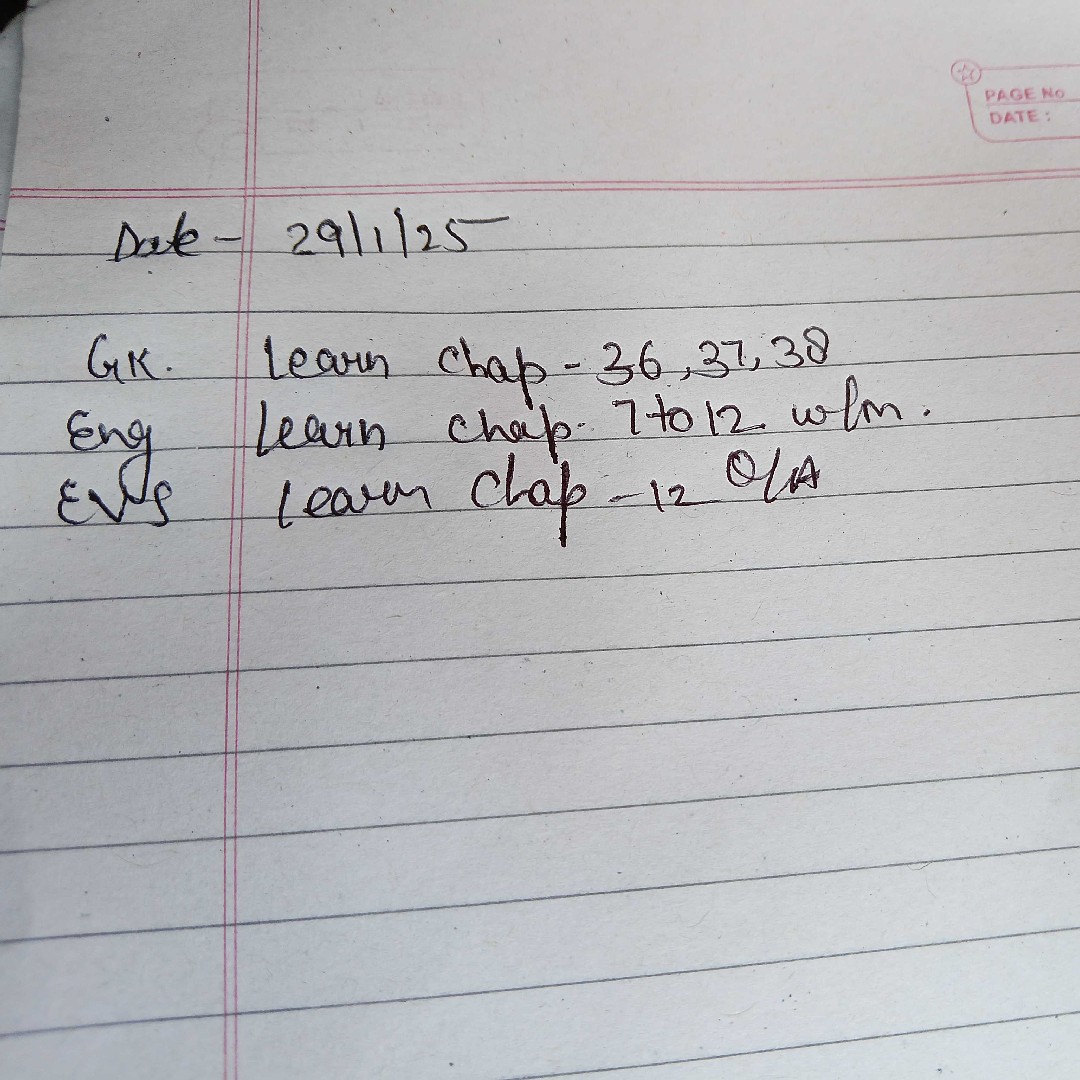 PAGE No
DATE:
Date - 29/1/25
GK. Learn Chap - 36, 37, 38
Eng Learn Chap- 7 to 12 w/m.
EVS Learn Chap - 12 Q/A